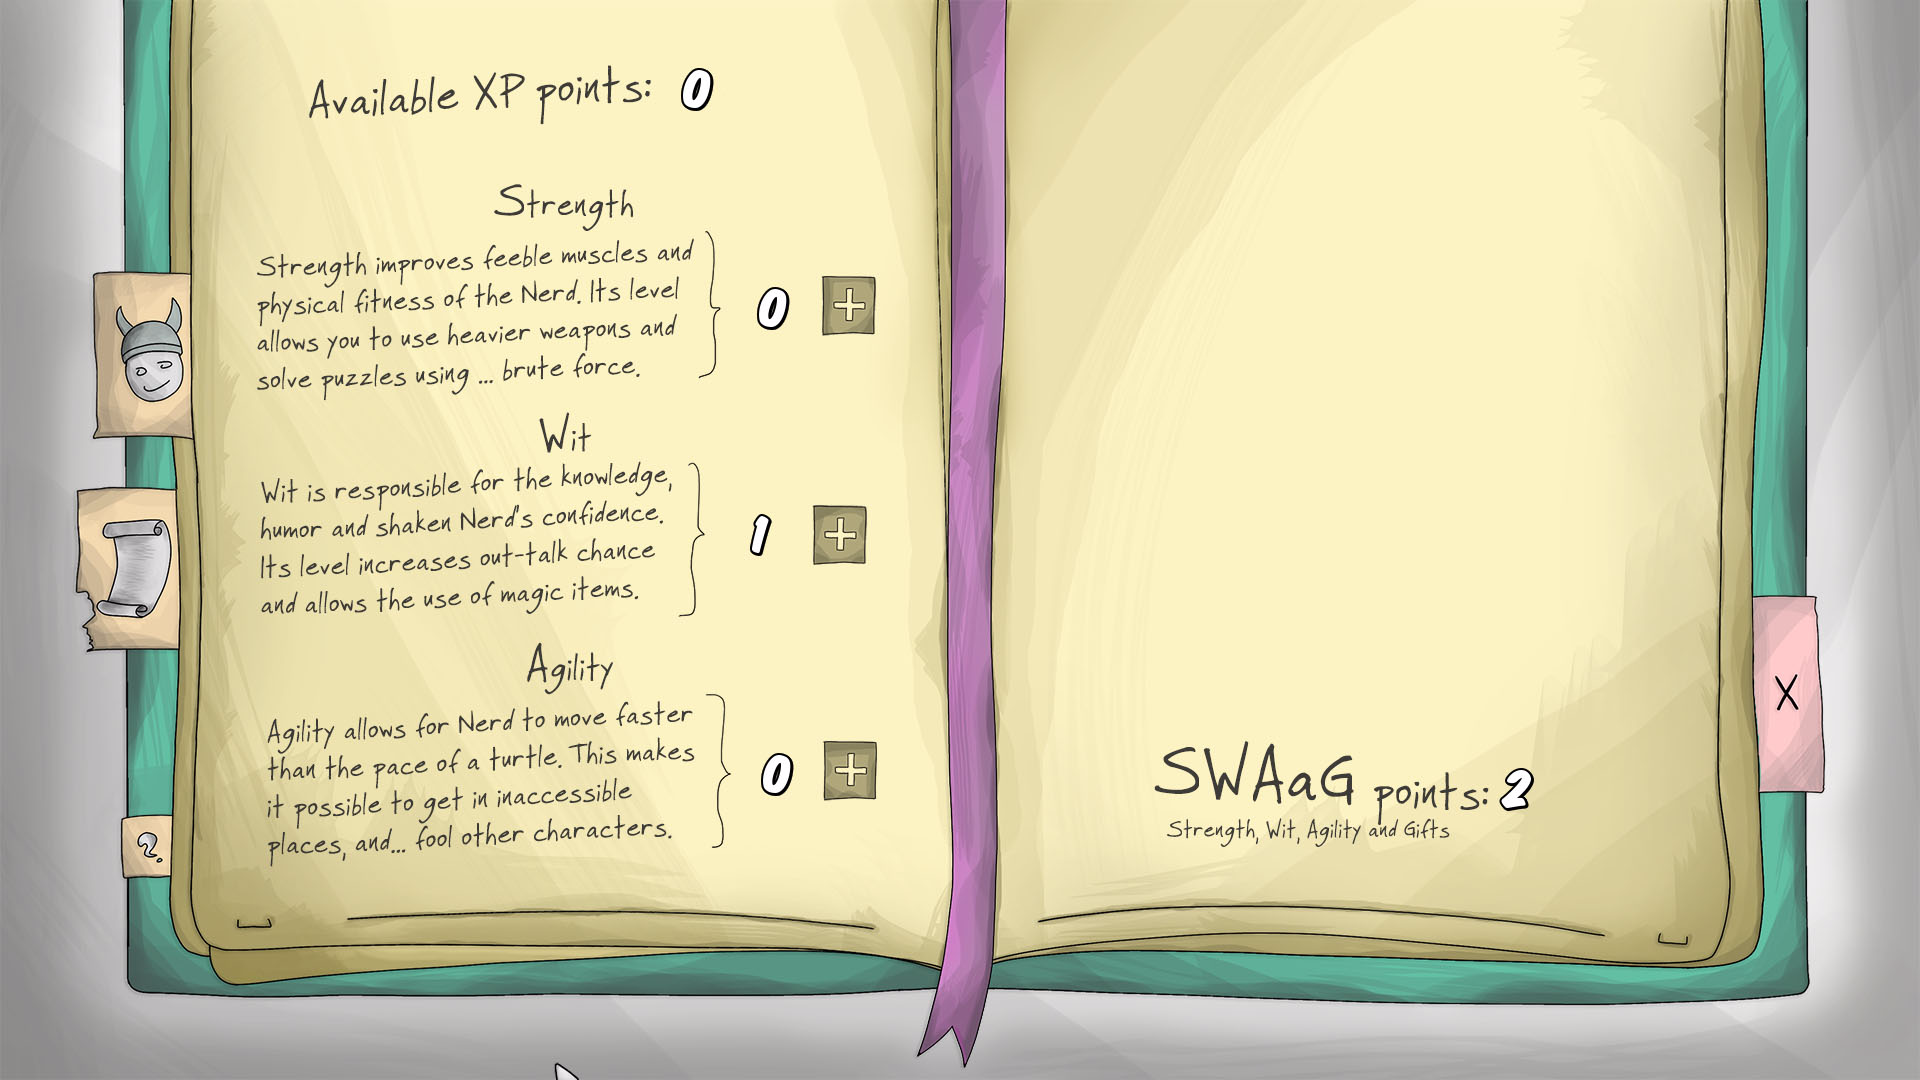 Available XP points: 0
Strength
Strength improves feeble muscles and
physical fitness of the Nerd. Its level
allows you to use heavier weapons and
solve puzzles using ... brute force.
0 +
Wit
Wit is responsible for the knowledge,
humor and shaken Nerd's confidence.
Its level increases out-talk chance
and allows the use of magic items.
1 +
Agility
Agility allows for Nerd to move faster
than the pace of a turtle. This makes
it possible to get in inaccessible
places, and... fool other characters.
0 +
?
SWAaG points: 2
Strength, Wit, Agility and Gifts
X